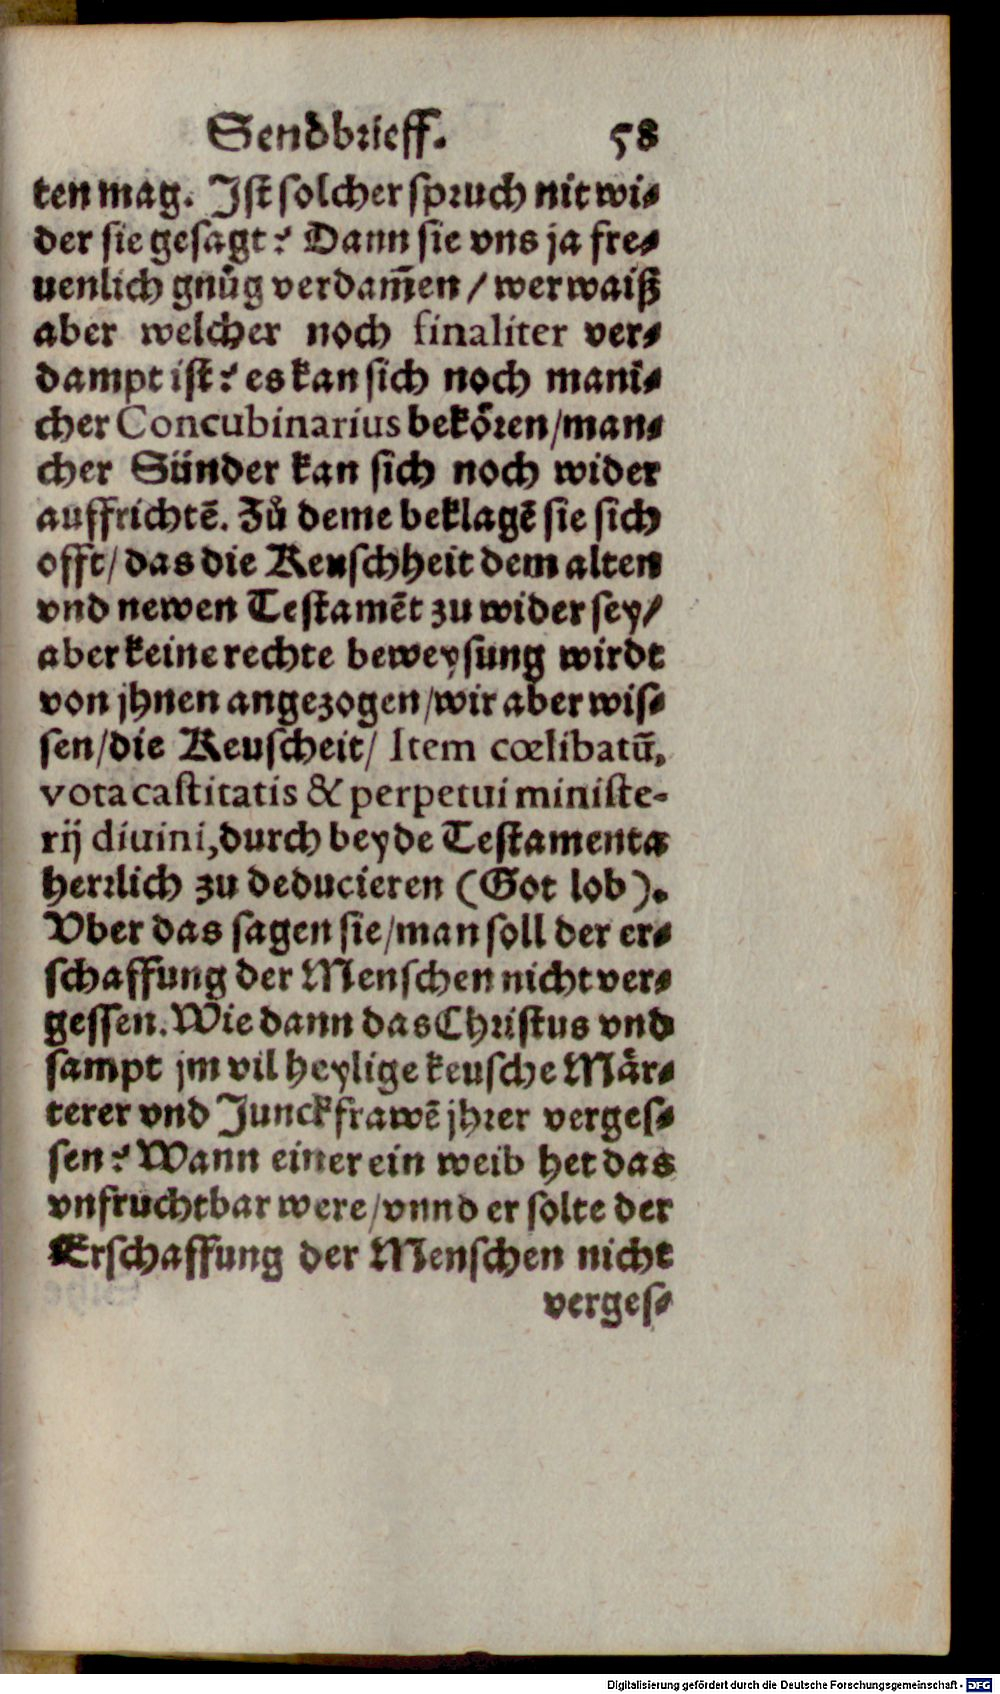 Sendbrieff. 58
ten mag. Jſt ſolcher ſpꝛuch nit wi⸗
der ſie geſagt? Dann ſie vns ja fre⸗
uenlich gnůg verdam̃en / wer waiß
aber welcher noch finaliter ver⸗
dampt iſt? es kan ſich noch mani⸗
cher Concubinarius bekoͤꝛen / man⸗
cher Sünder kan ſich noch wider
auffrichtẽ. Zů deme beklagẽ ſie ſich
offt / das die Keuſchheit dem alten
vnd newen Teſtamẽt zu wider ſey /
aber keine rechte beweyſung wirdt
von jhnen angezogen / wir aber wiſ⸗
ſen / die Keuſcheit / Item cœlibatū,
vota caſtitatis & perpetui miniſte-
rij diuini, durch beyde Teſtamenta
herꝛlich zu deducieren (Got lob).
Vber das ſagen ſie / man ſoll der er⸗
ſchaffung der Menſchen nicht ver⸗
geſſen. Wie dann das Chꝛiſtus vnd
ſampt jm vil heylige keuſche Maͤr⸗
terer vnd Junckfrawẽ jhꝛer vergeſ⸗
ſen? Wann einer ein weib het das
vnfruchtbar were / vnnd er ſolte der
Erſchaffung der Menſchen nicht
vergeſ⸗
Digitalisierung gefördert durch die Deutsche Forschungsgemeinschaft - DFG